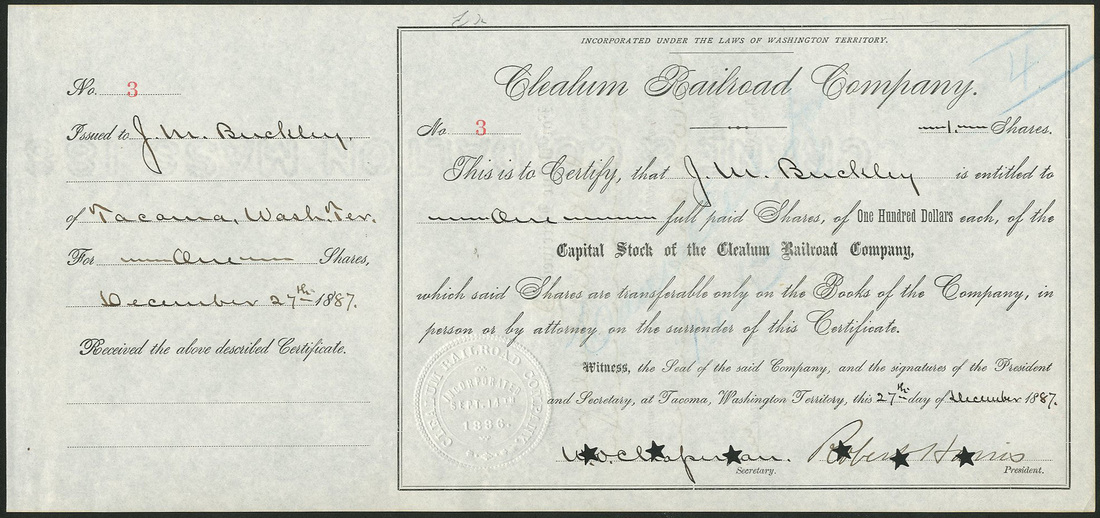 No. 3
Issued to J. M. Buckley.
of Tacoma, Wash. Ter.
For One Shares,
December 27th 1887.
Received the above described Certificate.
INCORPORATED UNDER THE LAWS OF WASHINGTON TERRITORY.
4
Clealum Railroad Company.
No. 3 1 Shares.
This is to Certify, that J. M. Buckley is entitled to
One full paid Shares, of One Hundred Dollars each, of the
Capital Stock of the Clealum Railroad Company,
which said Shares are transferable only on the Books of the Company, in
person or by attorney on the surrender of this Certificate.
Witness, the Seal of the said Company, and the signatures of the President
and Secretary, at Tacoma, Washington Territory, this 27th day of December 1887.
CLEALUM RAILROAD COMPANY
INCORPORATED
SEPT. 14TH
1886.
Secretary.
Robert Harris
President.